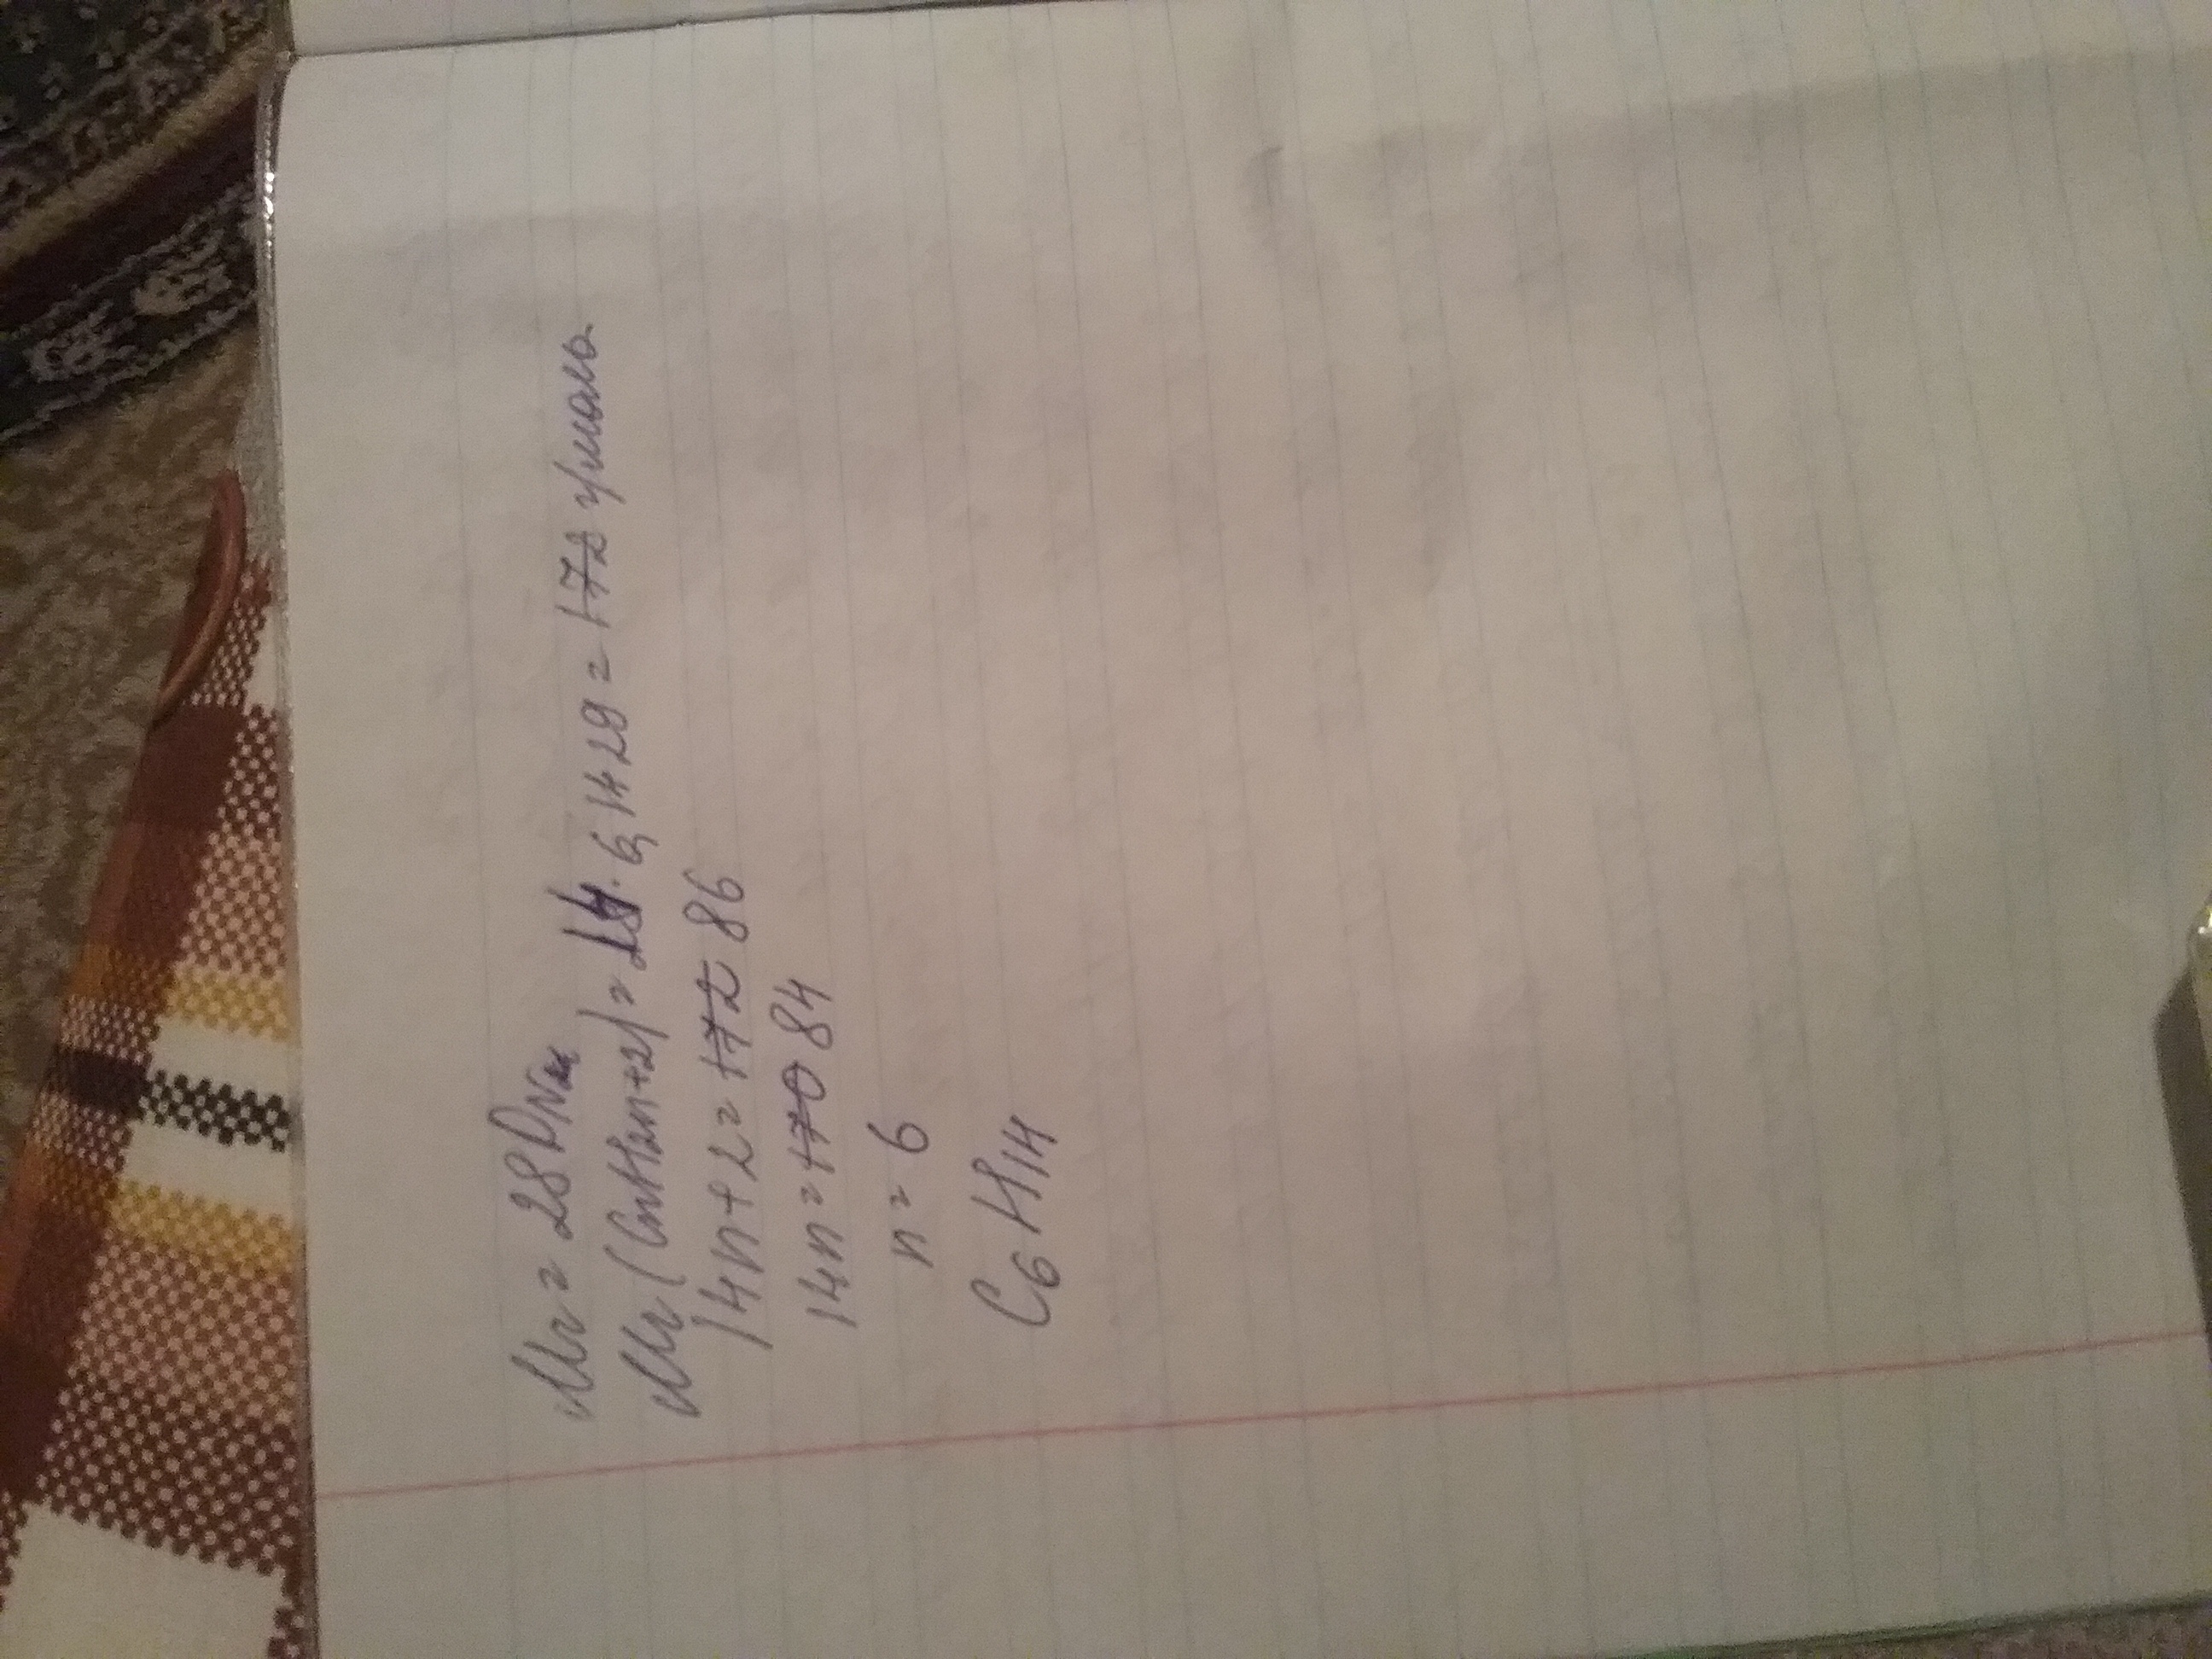 Mr = 28 DN₂
Mr (CnH2n+2) = 14 · 6,1429 = 172 г/моль
14n + 2 = 172 86
14n = 170 84
n = 6
C6H14